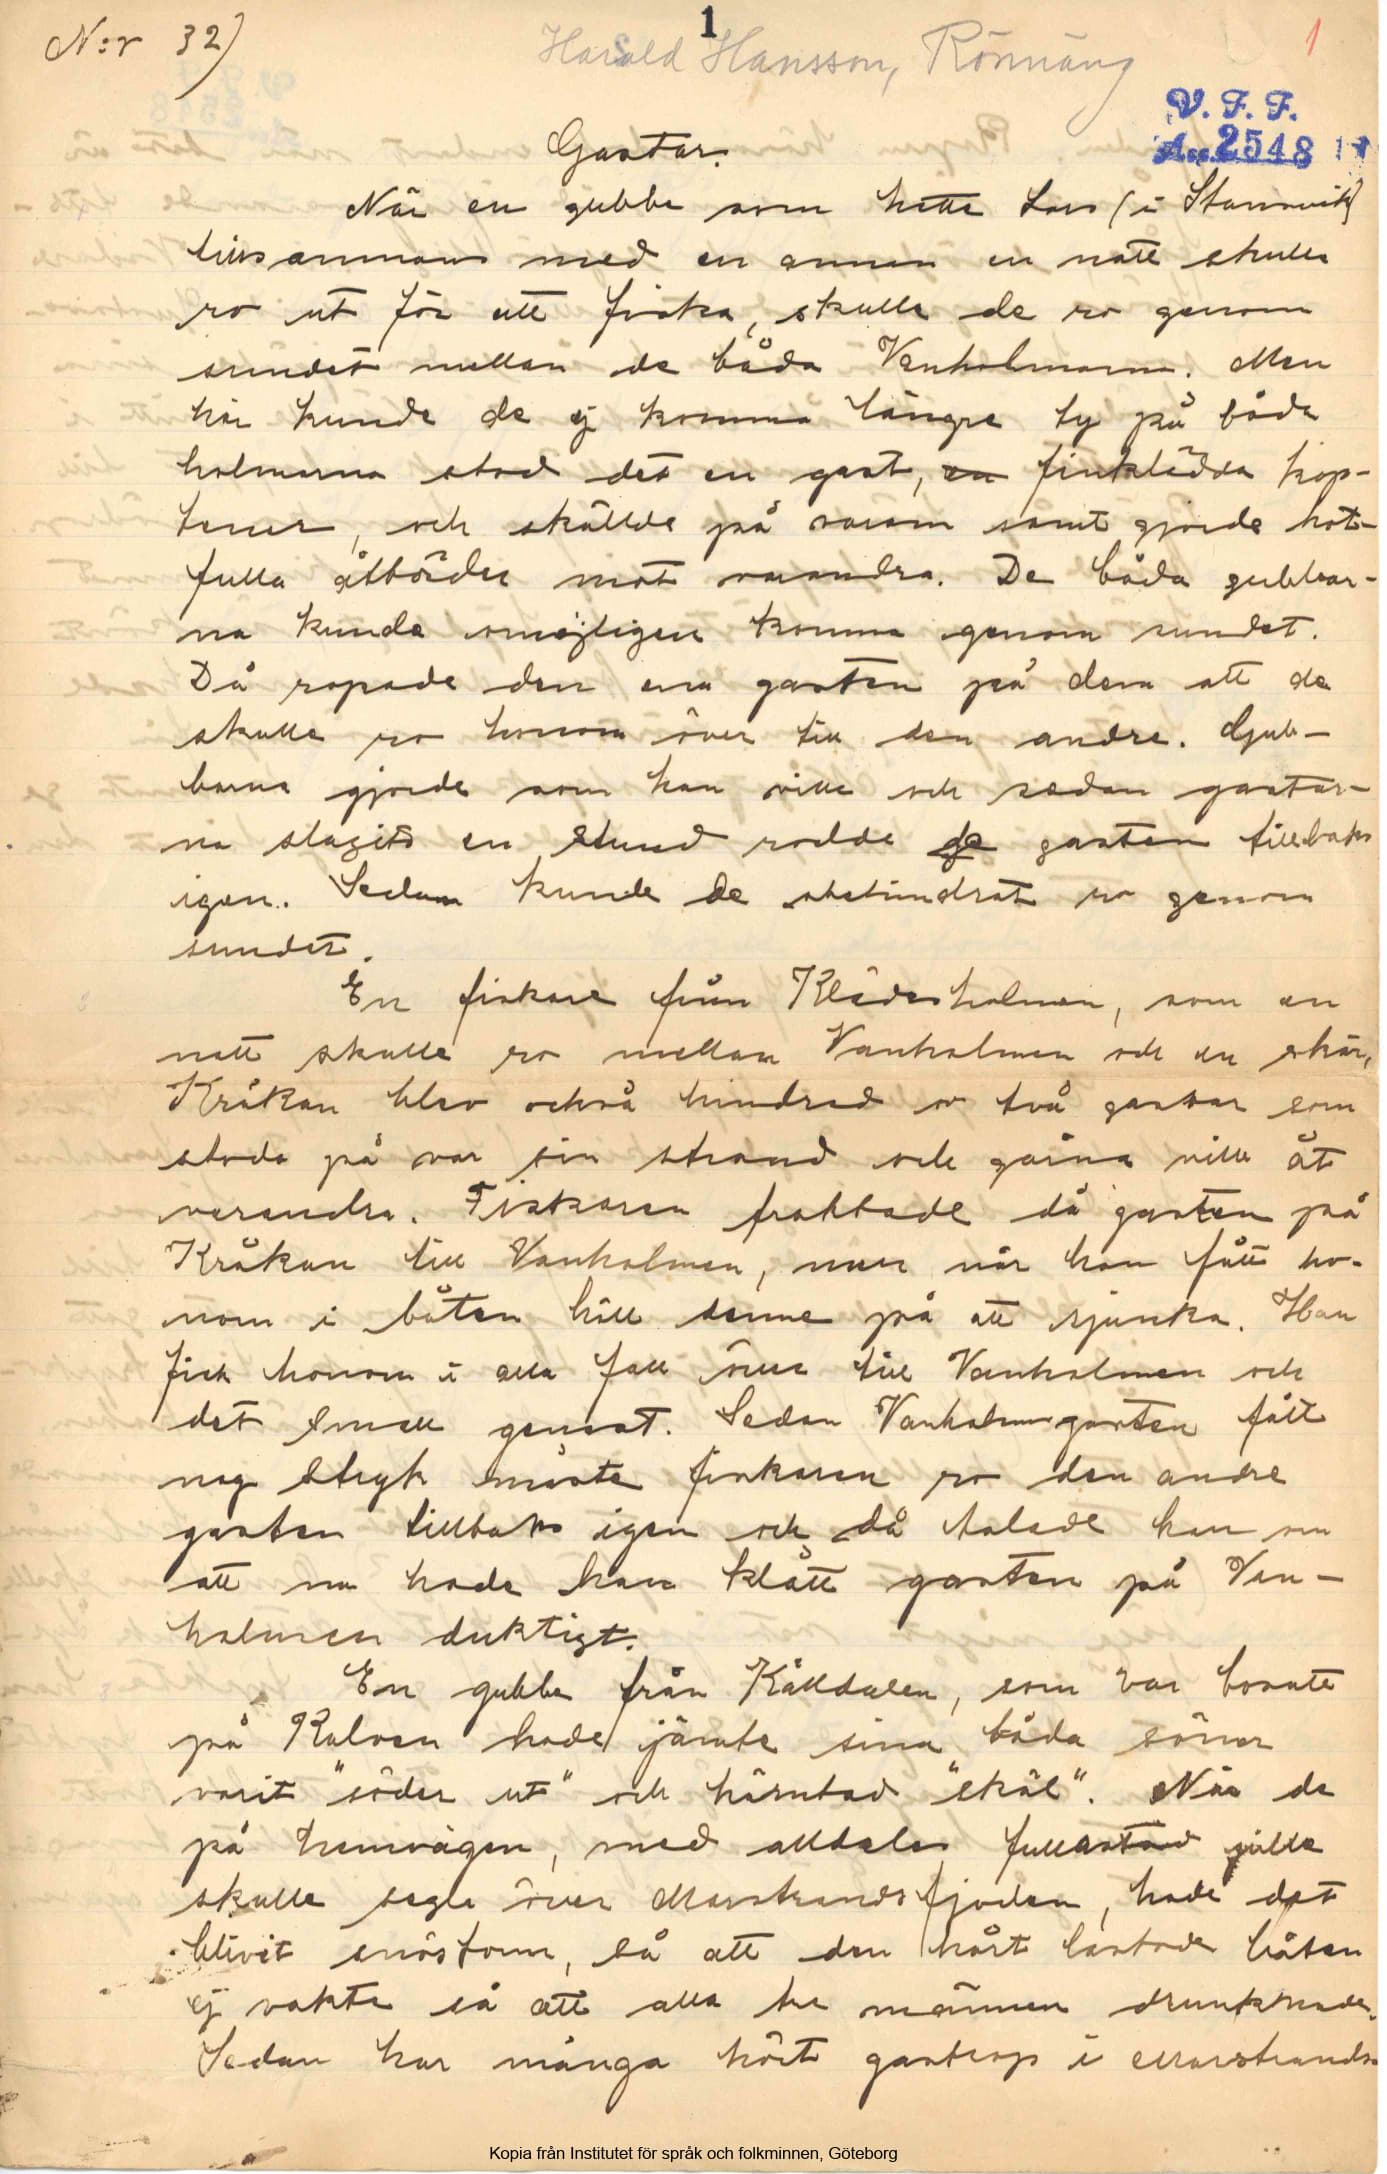 N:r 32)
1
Harald Hansson, Rönnäng
1
V. F. F.
Acc. 2548
Gastar.
När en gubbe som hette Lars (i Stansvik)
tillsammans med en annan en natt skulle
ro ut för att fiska, skulle de ro genom
sundet mellan de båda Vanholmarna. Men
här kunde de ej komma längre ty på båda
holmarna stod det en gast, en finklädda kap-
tener, och skällde på varann samt gjorde hot-
fulla åtbörder mot varandra. De båda gubbar-
na kunde omöjligen komma genom sundet.
Då ropade den ena gasten på dem att de
skulle ro honom över till den andre. Gub-
barna gjorde som han ville och sedan gastar-
na slagits en stund rodde de gasten tillbaks
igen. Sedan kunde de obehindrat ro genom
sundet.
En fiskare från Klädesholmen, som en
natt skulle ro mellan Vanholmen och en skär,
Kråkan blev också hindrad av två gastar som
stodo på var sin strand och gärna ville åt
varandra. Fiskaren fraktade då gasten på
Kråkan till Vanholmen, men när han fått ho-
nom i båten höll denne på att sjunka. Han
fick honom i alla fall över till Vanholmen och
det small genast. Sedan Vanholmsgasten fått
nog stryk måste fiskaren ro den andre
gasten tillbaks igen och då talade han om
att nu hade han klått gasten på Van-
holmen duktigt.
En gubbe från Kålldalen, som var bosatt
på Kalven hade jämte sina båda söner
varit "söder ut" och hämtad "skäl". När de
på hemvägen, med alldeles fullastad jälle
skulle segla över Marstrandsfjorden, hade det
blivit snöstorm, så att den hårt lastade båten
ej vakte så att alla tre männen drunknade.
Sedan har många hört gastrop i Marstrands-
Kopia från Institutet för språk och folkminnen, Göteborg